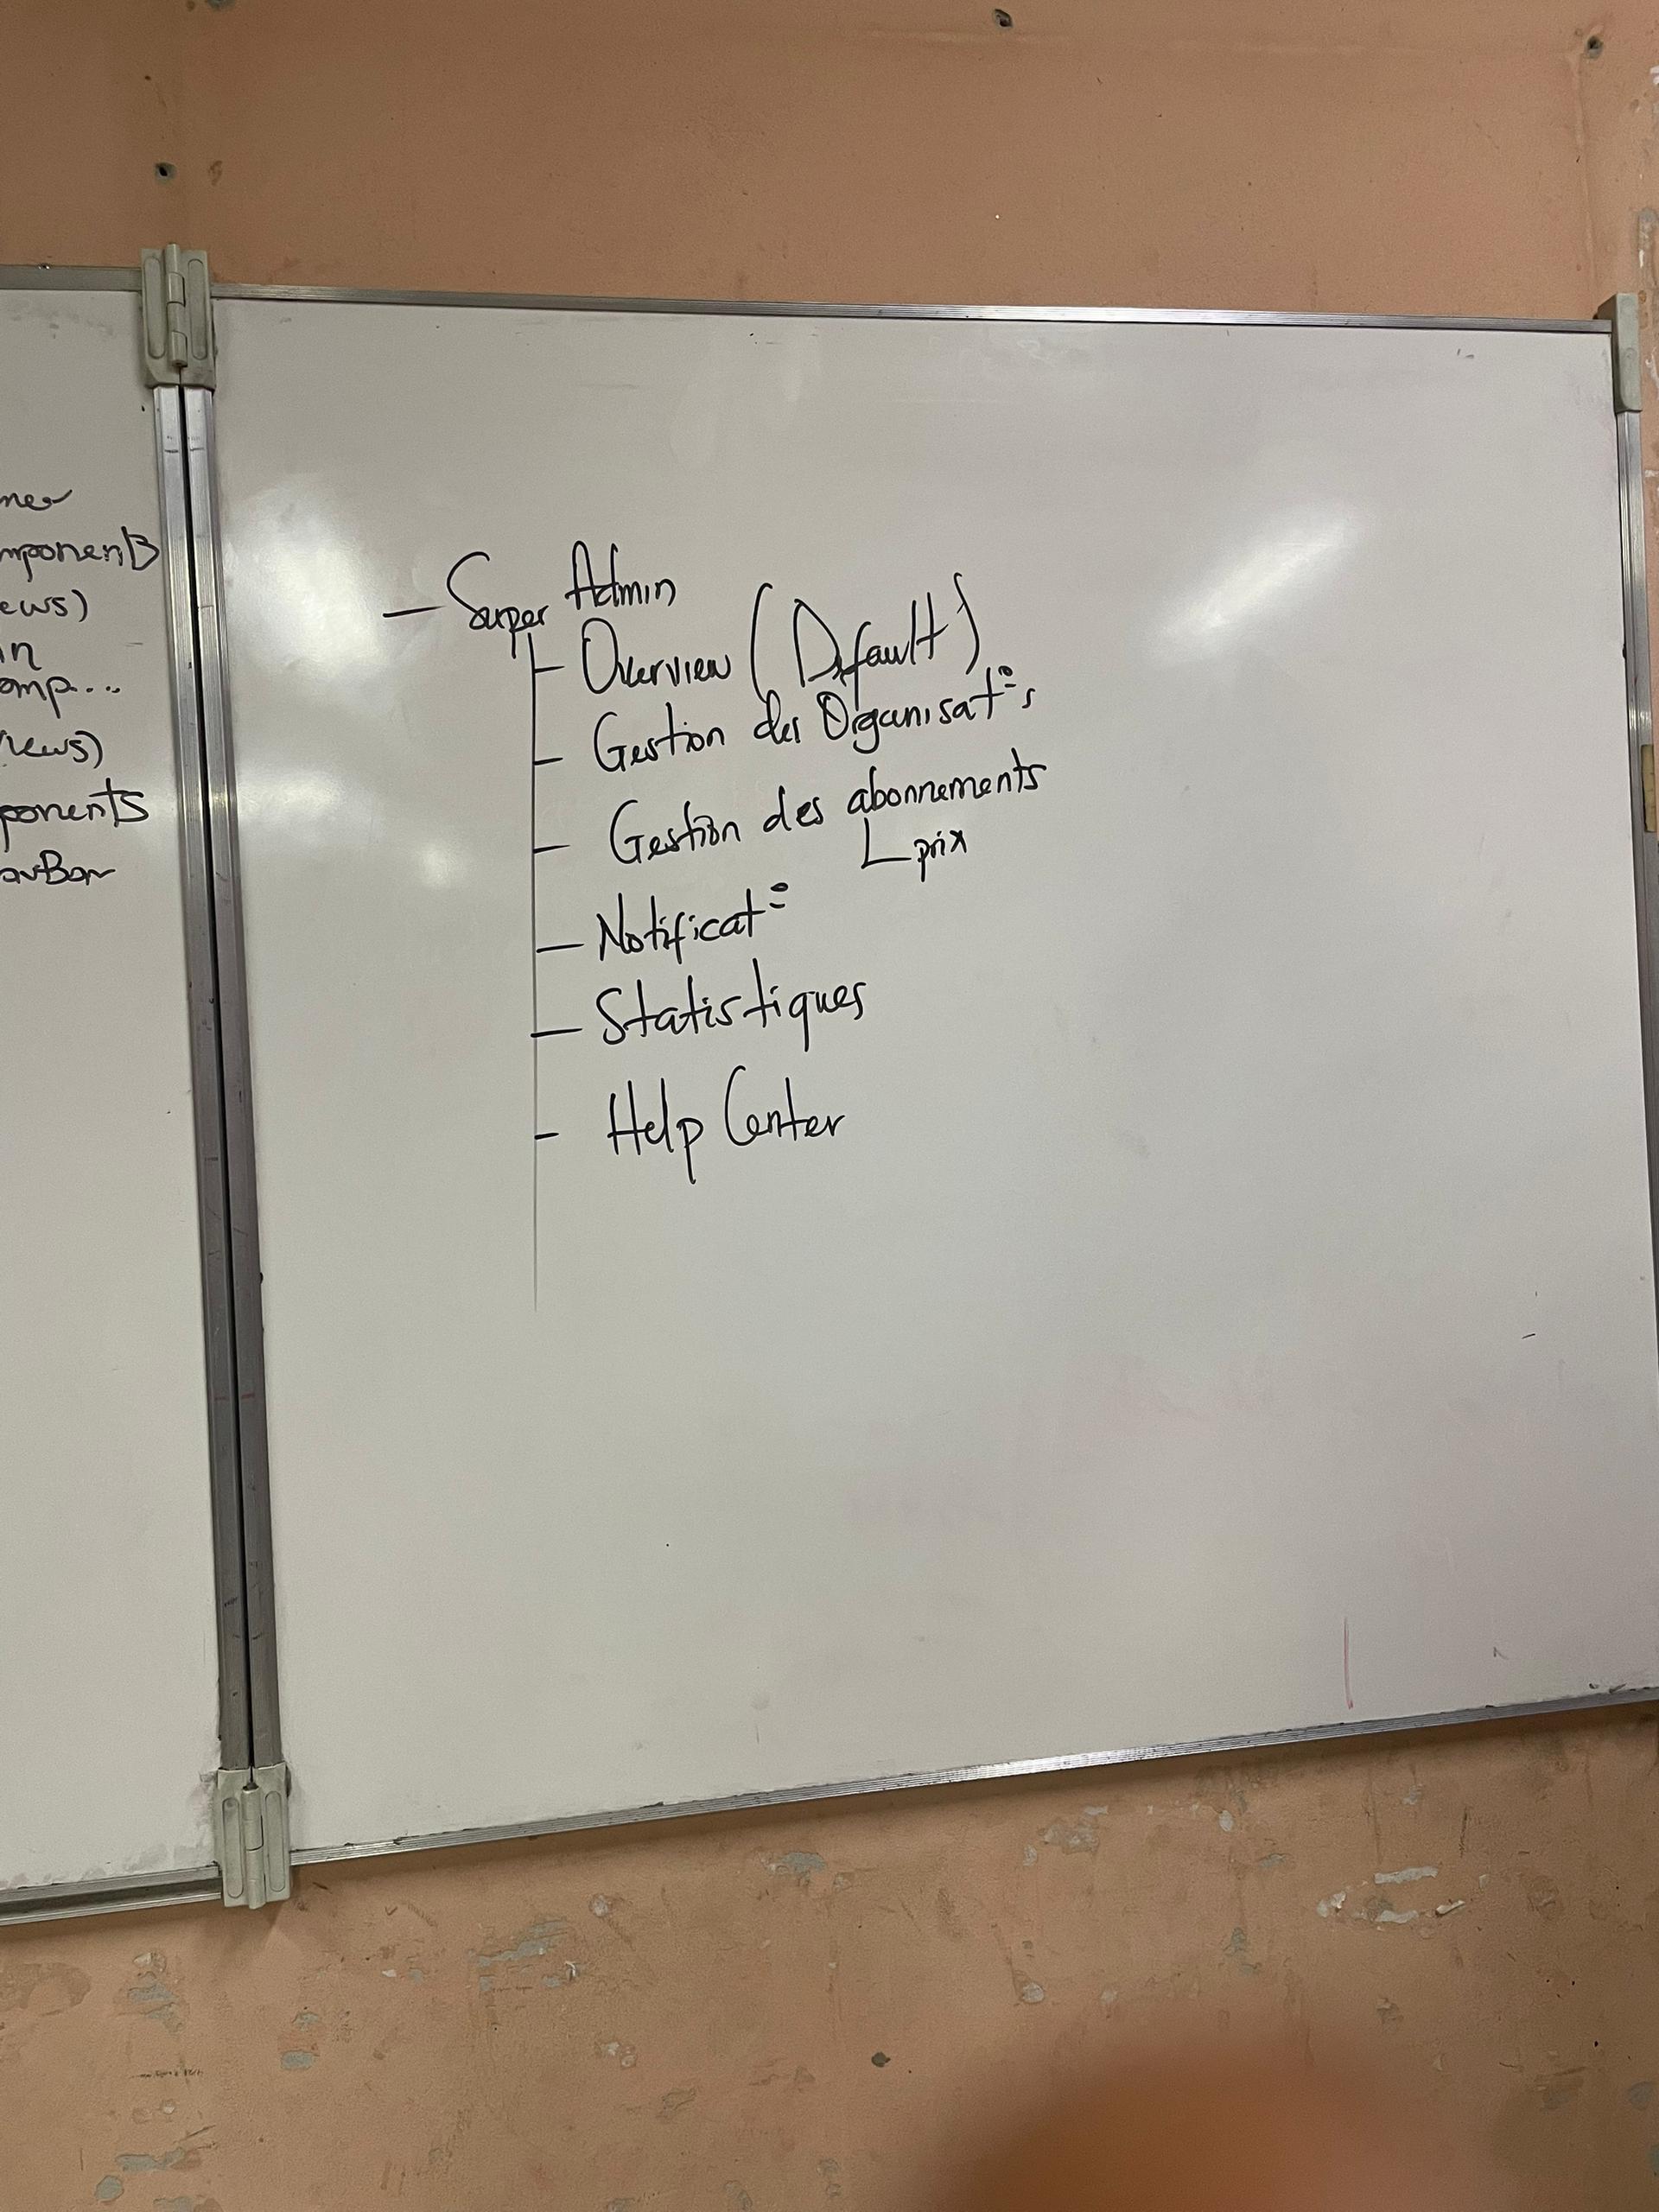 mponents
ews)
in
omp...
iews)
ponents
avBar
— Super Admin
— Overview (Default)
— Gestion des Organisat°s
— Gestion des abonnements
L prix
— Notificat°
— Statistiques
- Help Center